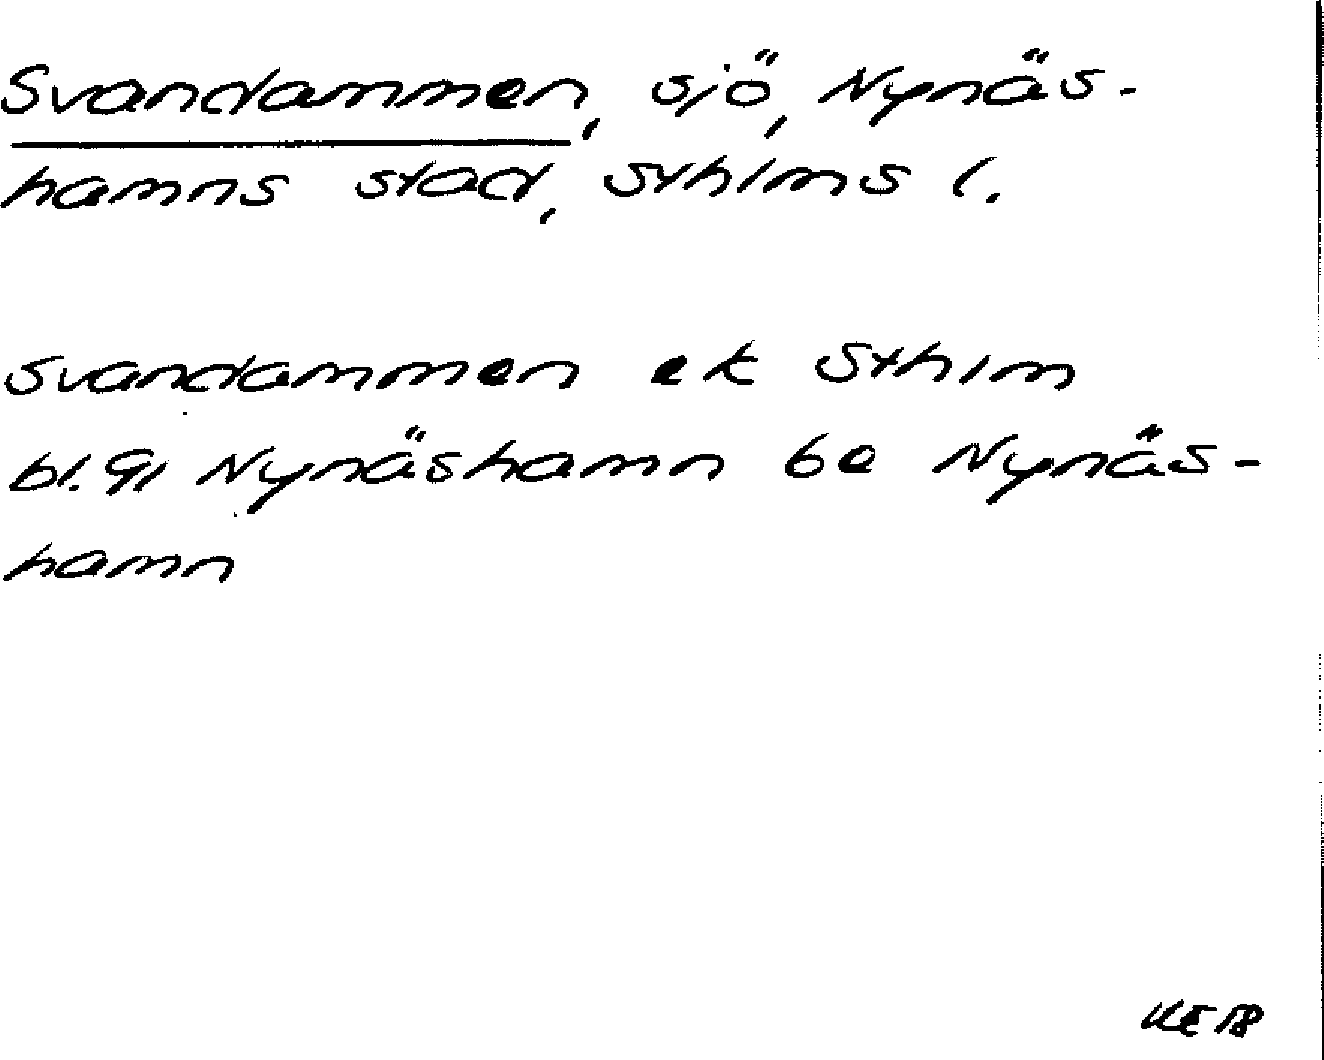 Svandammen, sjö, Nynäs-
hamns stad, Sthlms l.
Svandammen ek Sthlm
bl. 91 Nynäshamn be Nynäs-
hamn